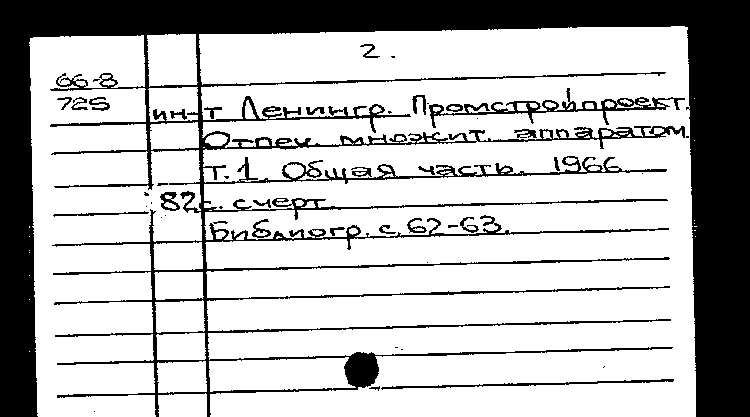 2.
66-8
725 ин-т Ленингр. Промстройпроект.
Отпеч. множит. аппаратом
Т.1 Общая часть. 1966
82с. с черт.
Библиогр. с. 62-63.